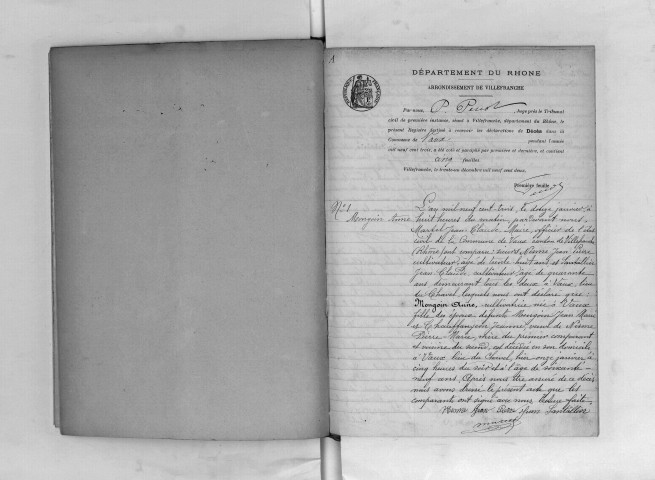 1
DÉPARTEMENT DU RHONE
ARRONDISSEMENT DE VILLEFRANCHE
RÉPUBLIQUE FRANÇAISE
Par nous, P. Perrot, Juge près le Tribunal
civil de première instance, séant à Villefranche, département du Rhône, le
présent Registre destiné à recevoir les déclarations de Décès dans la
Commune de Vaux pendant l'année
mil neuf cent trois, a été coté et paraphé par première et dernière, et contient
cinq feuilles.
Villefranche, le trente-un décembre mil neuf cent deux.
Première feuille
N° 1
Mongoin Anne
L'an mil neuf cent trois, le douze janvier, à
huit heures du matin, par devant nous
Martel Jean Claude Maire, officier de l'état
civil de la Commune de Vaux canton de Villefranche
(Rhône) ont comparu sieurs Jean Pierre
cultivateur, âgé de trente huit ans et
Jean Claude, cultivateur, âgé de quarante
ans demeurant tous les deux à Vaux, lieu
de lesquels nous ont déclaré que
Mongoin Anne, cultivatrice née à Vaux
fille des époux défunts Mongoin Jean Marie
et Chauffangeon Jeanne, veuve de
Pierre Marie, mère du premier comparant
et du second, est décédée en son domicile
à Vaux lieu du hier onze janvier à
cinq heures du soir à l'âge de soixante-
neuf ans. Après nous être assuré de ce décès
nous avons dressé le présent acte que les
comparants ont signé avec nous lecture faite.
Jean Pierre